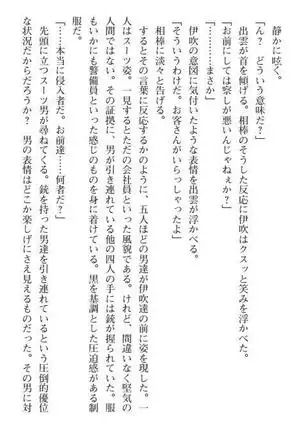 静かに呟く。
「ん？　どういう意味だ？」
出雲が首を傾げる。相棒のそうした反応に伊吹はクスッと笑みを浮かべた。
「お前にしては察しが悪いんじゃねぇか？」
「……まさか」
伊吹の意図に気付いたような表情を出雲が浮かべる。
「そういうわけだ。お客さんがいらっしゃったよ」
相棒に淡々と告げる。
するとその言葉に反応するかのように、五人ほどの男達が伊吹達の前に姿を現した。一
人はスーツ姿。一見するとただの会社員といった風貌である。けれど、間違いなく堅気の
人間ではない。その証拠に、男が引き連れている他の四人の手には銃が握られていた。服
もいかにも警備員といった感じのものを身に着けている。黒を基調とした圧迫感がある制
服だ。
「……本当に侵入者だ。お前達……何者だ？」
先頭に立つスーツ男が尋ねてくる。銃を持った男達を引き連れているという圧倒的優位
な状況だからだろうか？　男の表情はどこか楽しげにさえ見えるものだった。その男に対